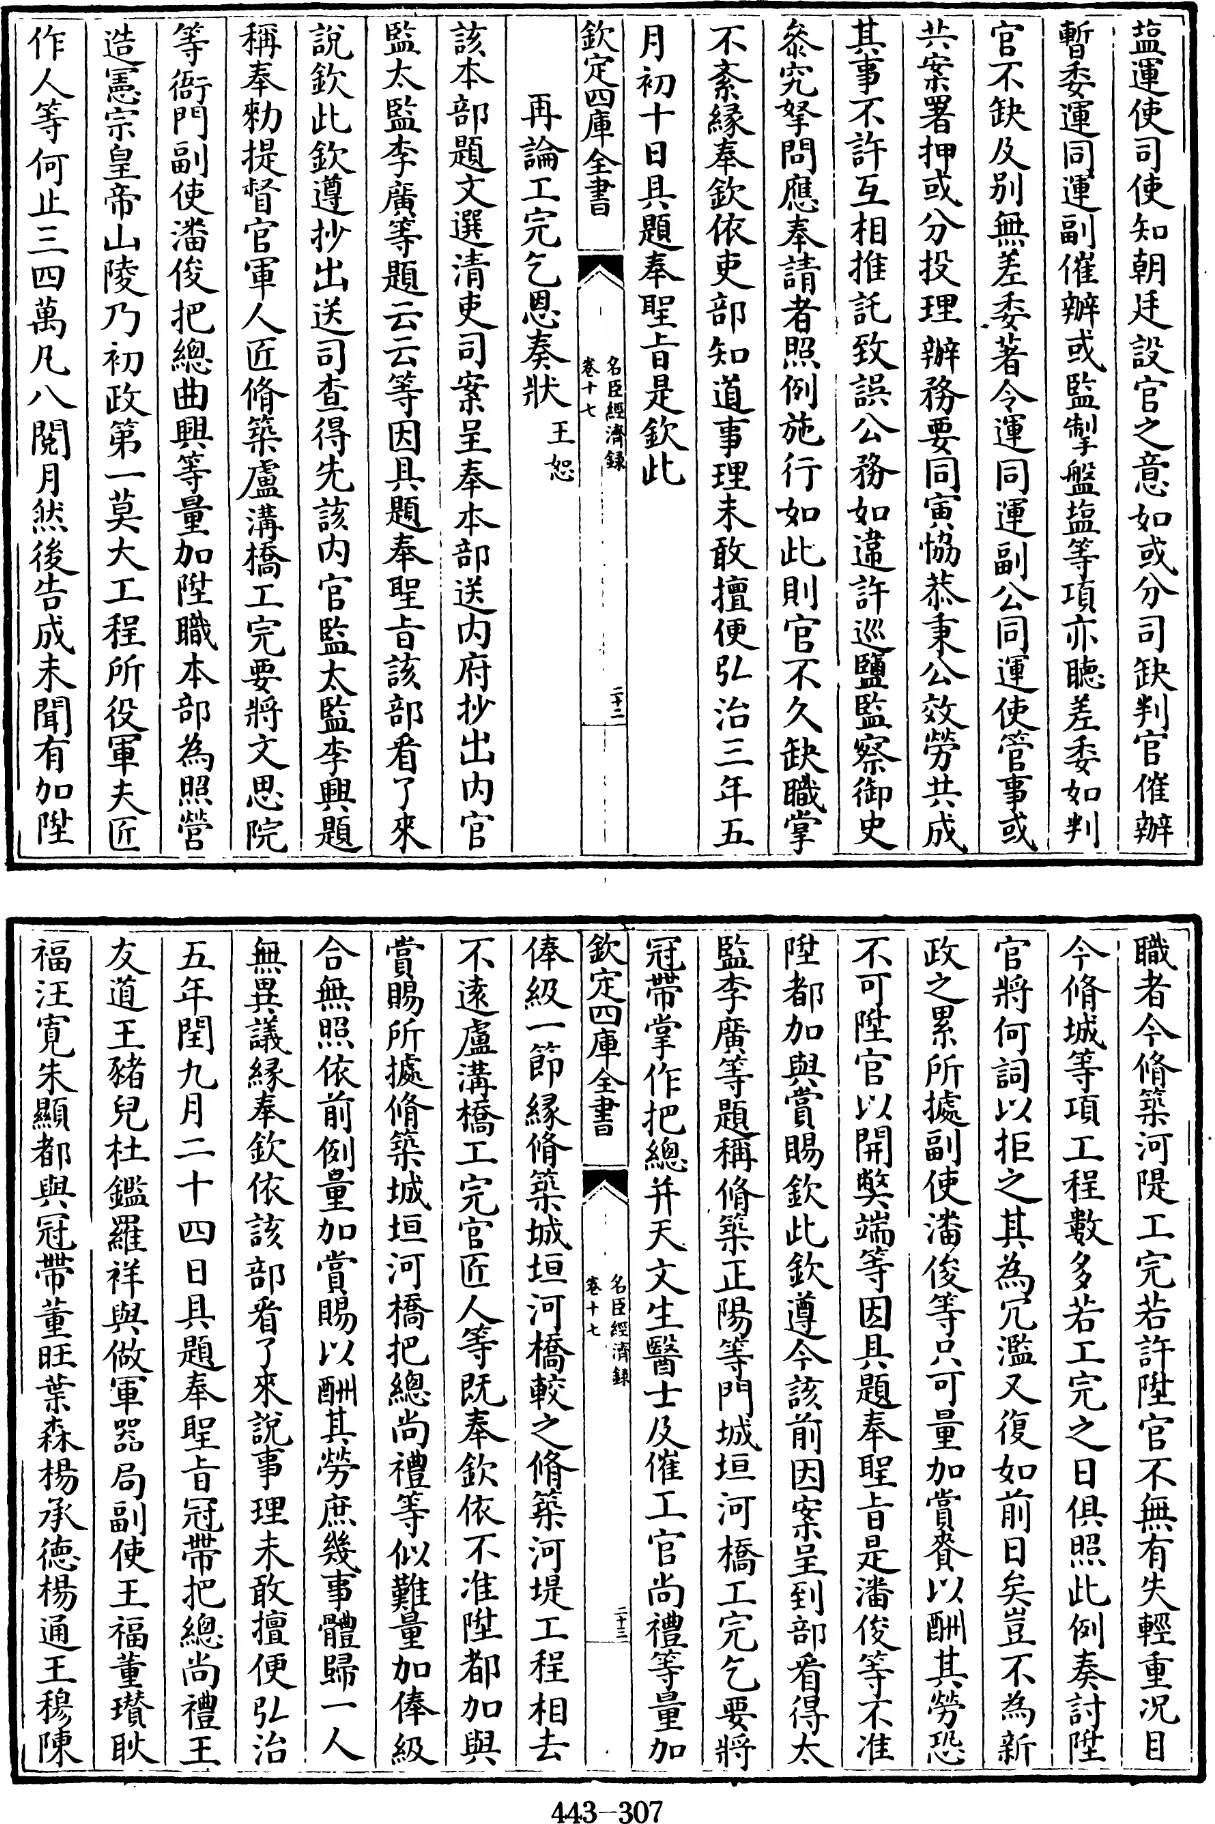 塩運使司使知朝廷設官之意如或分司缺判官催辦
暫委運同運副催辦或監掣盤塩等項亦聽差委如判
官不缺及別無差委著令運同運副公同運使管事或
共案署押或分投理辦務要同寅恊恭秉公效勞共成
其事不許互相推託致誤公務如違許巡鹽監察御史
叅究拏問應奉請者照例施行如此則官不久缺職掌
不紊緣奉欽依吏部知道事理未敢擅便弘治三年五
月初十日具題奉聖旨是欽此
欽定四庫全書
名臣經濟録
卷十七
二十二
再論工完乞恩奏狀 王恕
該本部題文選清吏司案呈奉本部送內府抄出內官
監太監李廣等題云云等因具題奉聖旨該部看了來
說欽此欽遵抄出送司查得先該內官監太監李興題
稱奉勑提督官軍人匠脩築盧溝橋工完要將文思院
等衙門副使潘俊把總曲興等量加陞職本部為照營
造憲宗皇帝山陵乃初政第一莫大工程所役軍夫匠
作人等何止三四萬凡八閱月然後告成未聞有加陞
職者今脩築河隄工完若許陞官不無有失輕重况目
今脩城等項工程數多若工完之日俱照此例奏討陞
官將何詞以拒之其為冗濫又復如前日矣豈不為新
政之累所據副使潘俊等只可量加賞賚以酬其勞恐
不可陞官以開弊端等因具題奉聖旨是潘俊等不准
陞都加與賞賜欽此欽遵今該前因案呈到部看得太
監李廣等題稱脩築正陽等門城垣河橋工完乞要將
冠帶掌作把總并天文生醫士及催工官尚禮等量加
欽定四庫全書
名臣經濟録
卷十七
二十三
俸級一節緣脩築城垣河橋較之脩築河堤工程相去
不遠盧溝橋工完官匠人等既奉欽依不准陞都加與
賞賜所據脩築城垣河橋把總尚禮等似難量加俸級
合無照依前例量加賞賜以酬其勞庶幾事體歸一人
無異議緣奉欽依該部看了來說事理未敢擅便弘治
五年閏九月二十四日具題奉聖旨冠帶把總尚禮王
友道王豬兒杜鑑羅祥與做軍器局副使王福董瓚耿
福汪寛朱顯都與冠帶董旺葉森楊承德楊通王穆陳
443-307